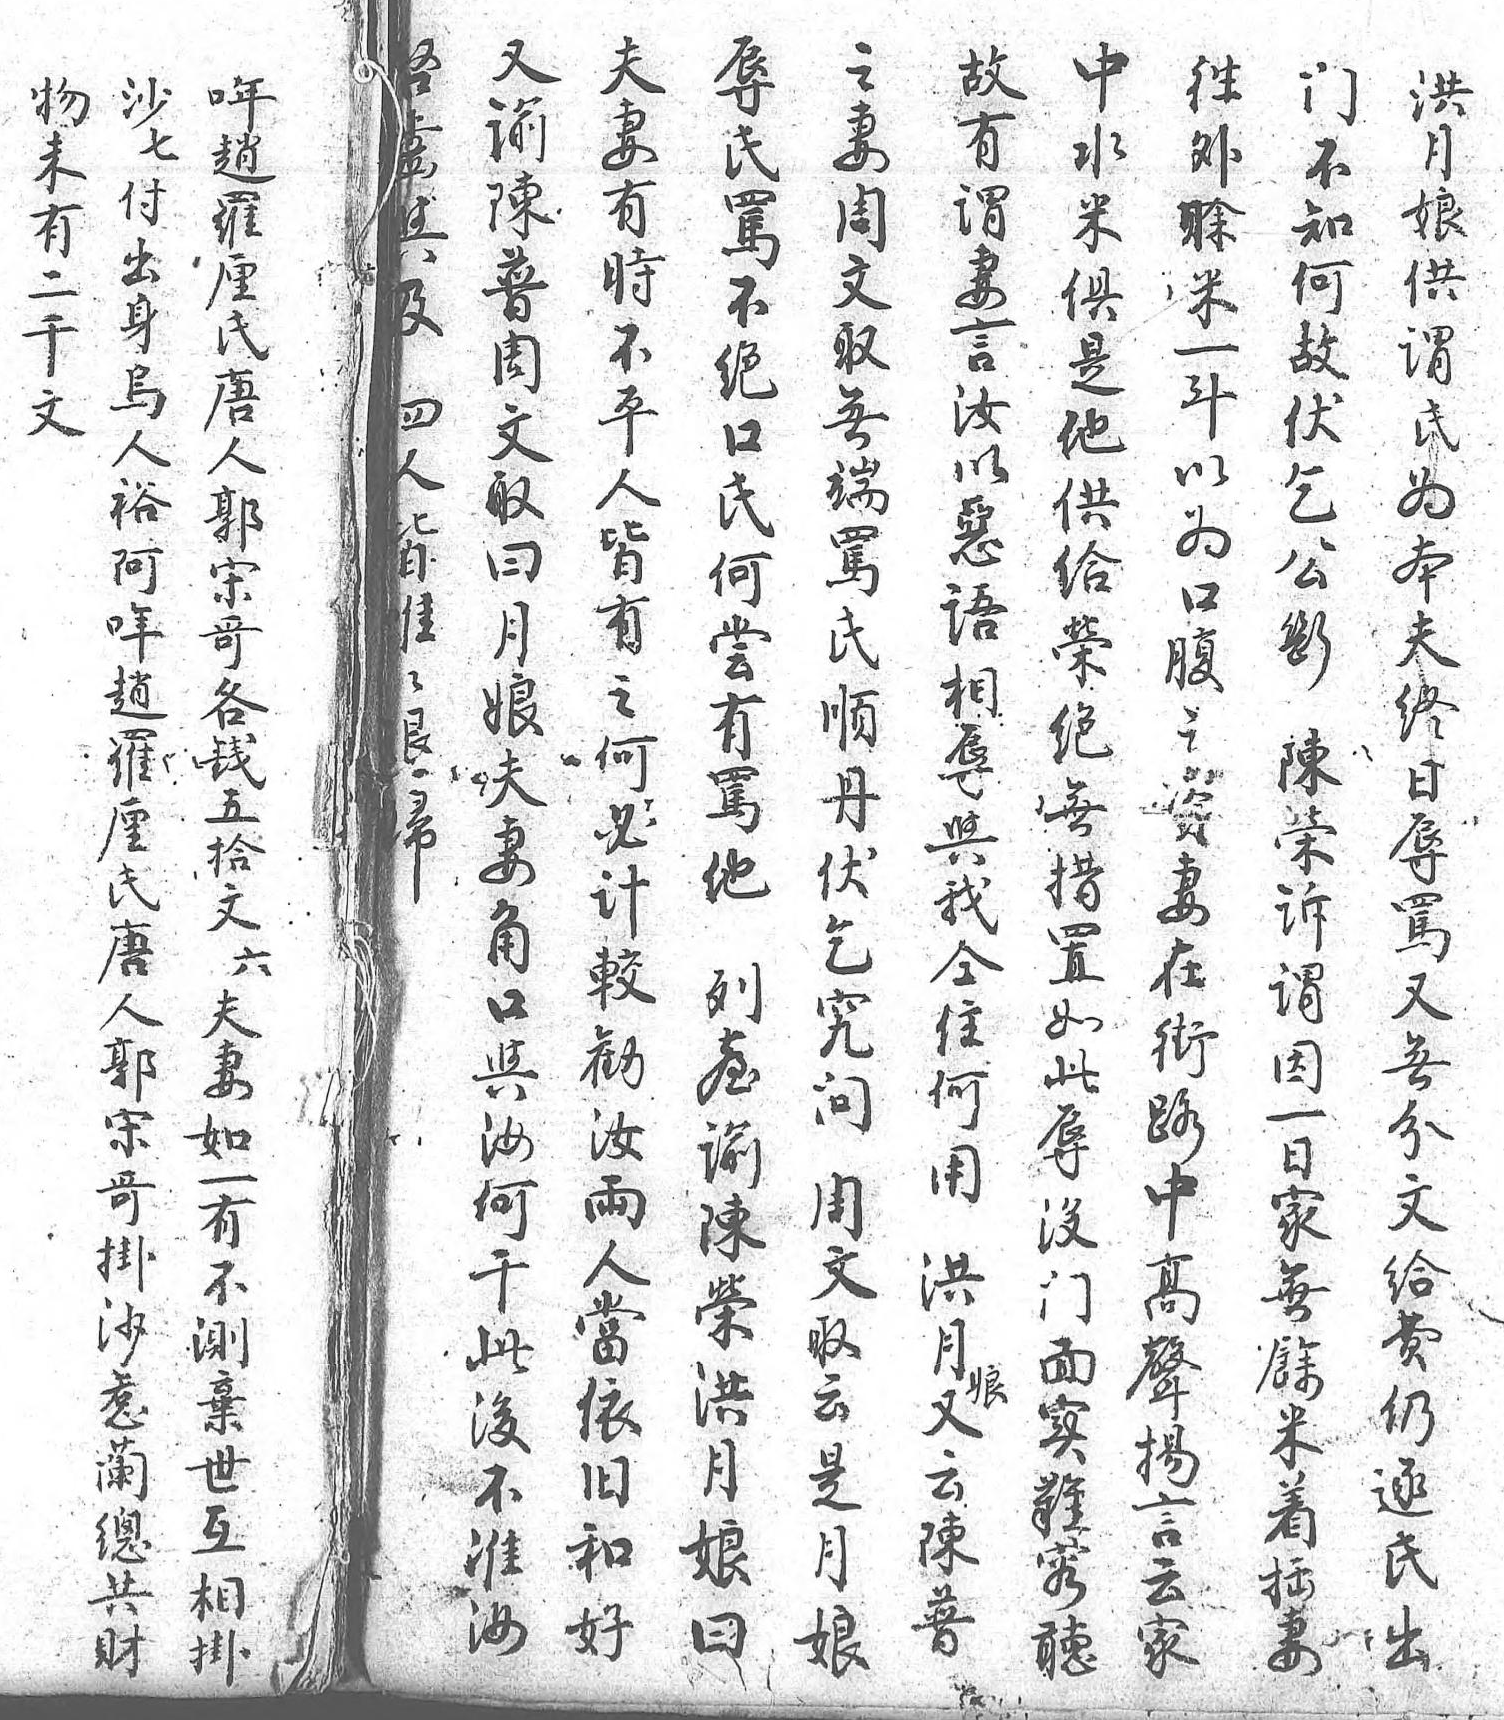 洪月娘供謂氏为本夫終日辱罵又無分文給費仍逐氏出
门不知何故伏乞公断　陳荣訴謂因一日家無餘米着拙妻
往外賒米一斗以为口腹之資妻在街路中高聲揚言云家
中水米俱是他供給榮絕無措置如此辱没门面实難容聽
故有謂妻言汝以惡語相辱與我仝住何用　洪月娘又云陳普
之妻周文取無端罵氏順丹伏乞究问　周文取云是月娘
辱氏罵不絕口氏何尝有罵他　列台谕陳榮洪月娘曰
夫妻有時不平人皆有之何必计較勸汝兩人當依旧和好
又谕陳普周文取曰月娘夫妻角口與汝何干此後不准汝
四人皆
哖趙羅厘氏唐人郭宋哥各钱五拾文六夫妻如一有不測棄世互相掛
沙七付出身烏人裕阿哖趙羅厘氏唐人郭宋哥掛沙惹蘭總共財
物未有二千文